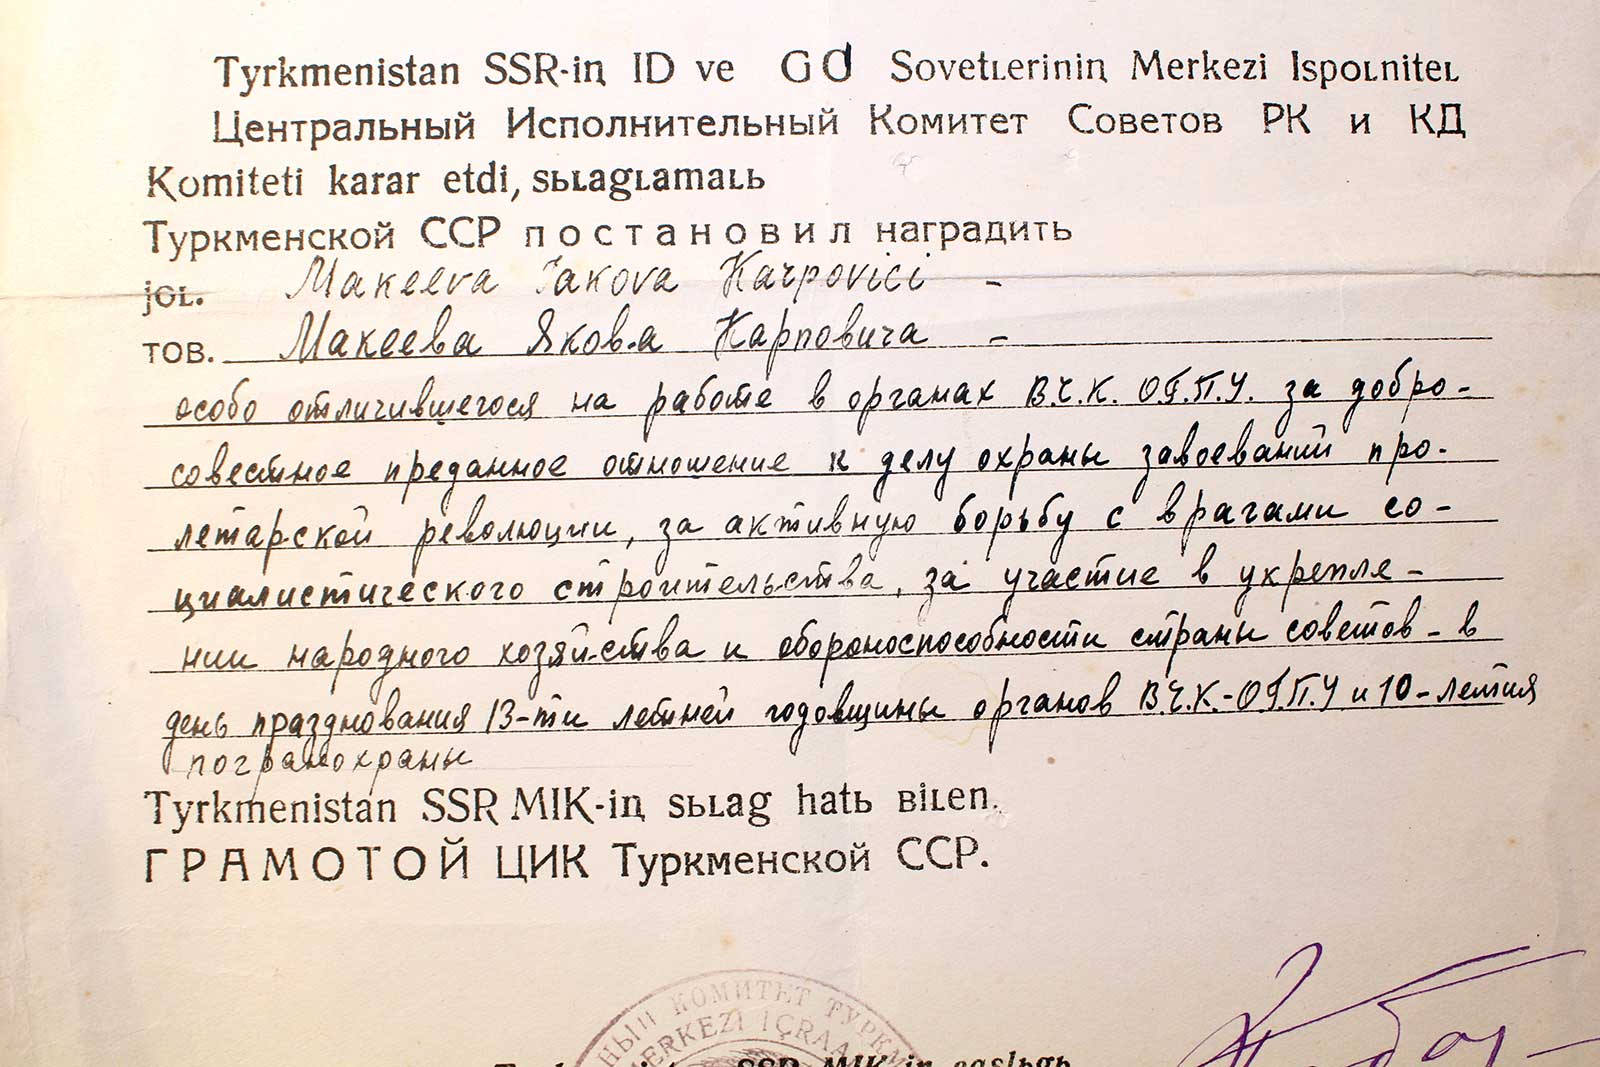 Tyrkmenistan SSR-iꞑ ID ve GD Sovetleriniꞑ Merkezi Ispolnitel
Центральный Исполнительный Комитет Советов РК и КД
Komiteti karar etdi, sьlaglamalь
Туркменской ССР постановил наградить
jol. Makeeva Iakova Karpovici -
тов. Макеева Якова Карповича -
особо отличившегося на работе в органах В.Ч.К. О.Г.П.У. за добро-
совестное преданное отношение к делу охраны завоеваний про-
летарской революции, за активную борьбу с врагами со-
циалистического строительства, за участие в укрепле-
нии народного хозяйства и обороноспособности страны советов - в
день празднования 13-ти летней годовщины органов В.Ч.К.-О.Г.П.У и 10-летия
погранохраны
Tyrkmenistan SSR MIK-iꞑ sьlag hatь bilen.
ГРАМОТОЙ ЦИК Туркменской ССР.
НЫЙ КОМИТЕТ ТУРКМ
MERKEZI IÇRAA
SSR MIK-iꞑ